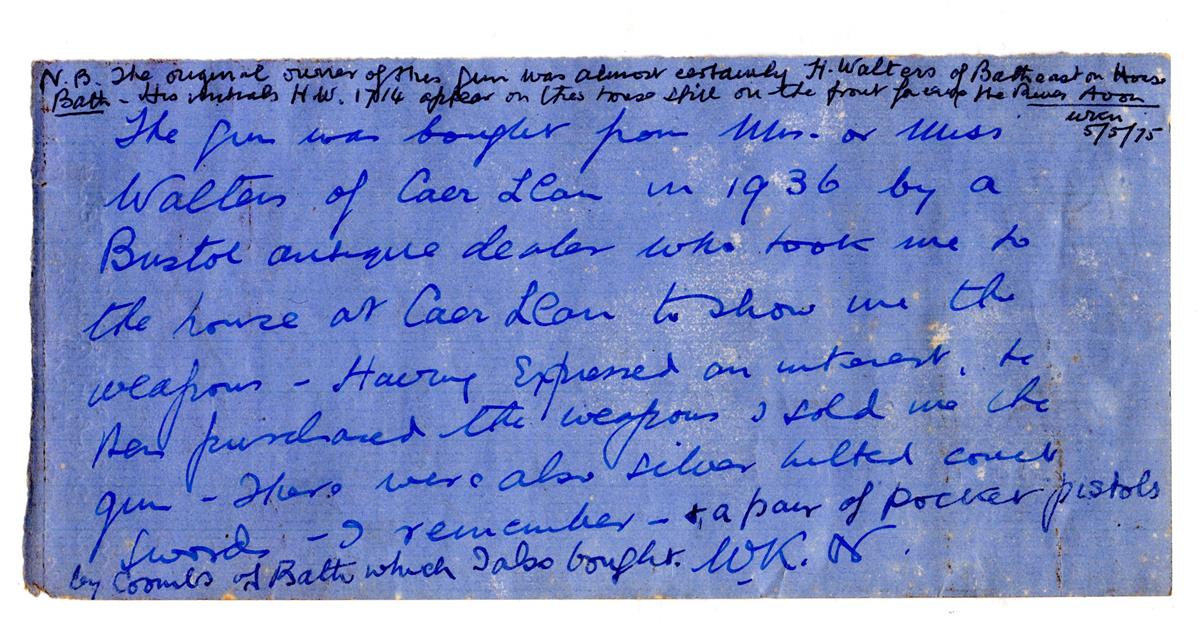 N.B. The original owner of this gun was almost certainly H. Walters of Batheaston House
Bath - His initials H.W. 1714 appear on this house still on the front facing the River Avon
WKN
5/5/75
The gun was bought from Mrs. or Miss
Walters of Caer Llan in 1936 by a
Bristol antique dealer who took me to
the house at Caer Llan to show me the
weapons - Having Expressed an interest, he
then purchased the weapons & sold me the
gun - There were also silver hilted court
swords - I remember - & a pair of pocket pistols
by Coombs of Bath which I also bought. W.K. N.